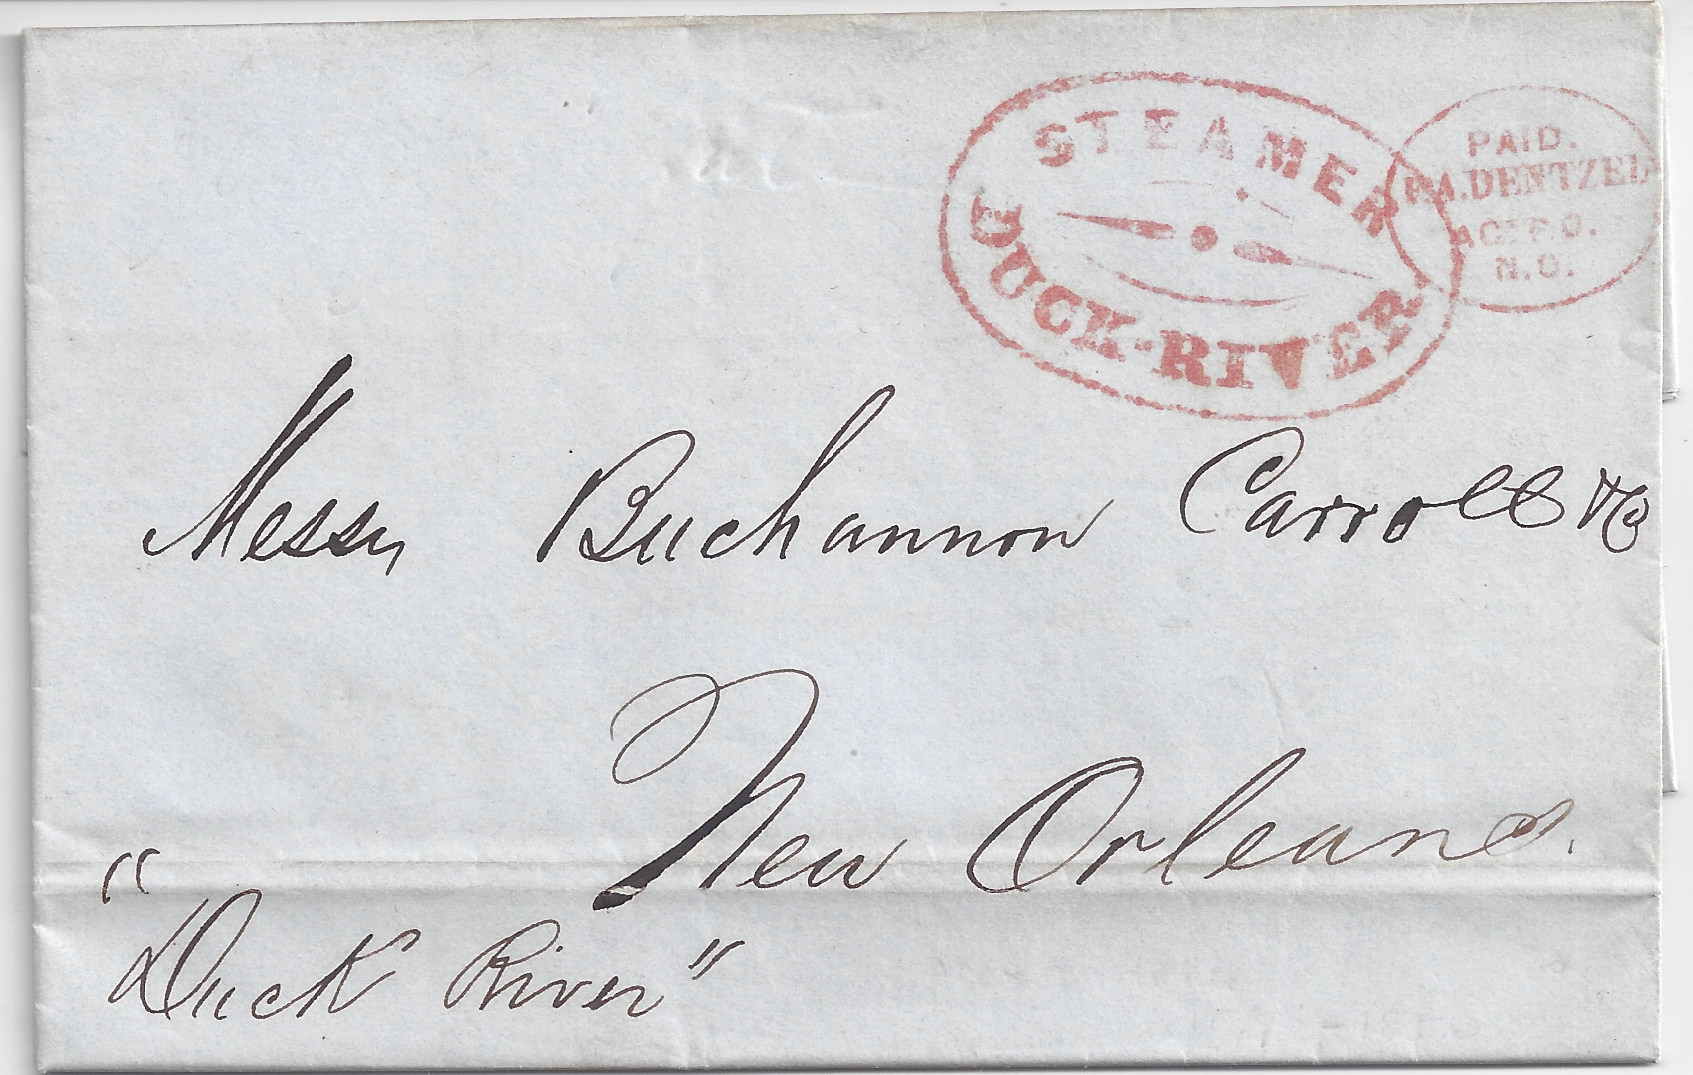 STEAMER
DUCK-RIVER
PAID.
P.A.DENTZEL
AGT P.O.
N.O.
Messrs Buchannon Carroll & Co
New Orleans.
"Duck River"